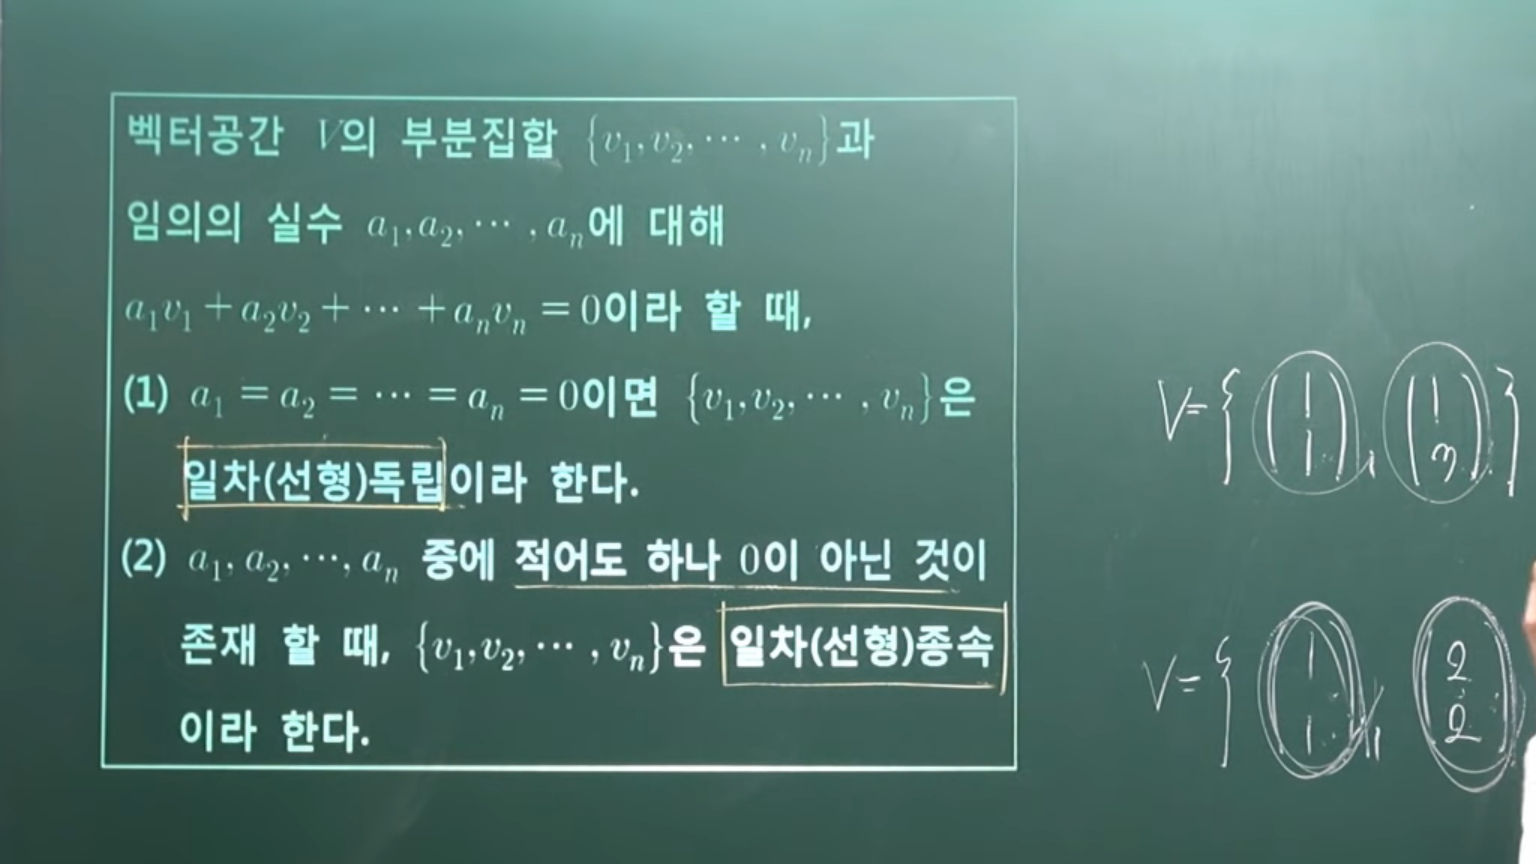 벡터공간 V의 부분집합 {v₁, v₂, ⋯ , vₙ}과
임의의 실수 a₁, a₂, ⋯ , aₙ에 대해
a₁v₁ + a₂v₂ + ⋯ + aₙvₙ = 0이라 할 때,
(1) a₁ = a₂ = ⋯ = aₙ = 0이면 {v₁, v₂, ⋯ , vₙ}은
일차(선형)독립이라 한다.
(2) a₁, a₂, ⋯, aₙ 중에 적어도 하나 0이 아닌 것이
존재 할 때, {v₁, v₂, ⋯ , vₙ}은 일차(선형)종속
이라 한다.
V={(1 1), (1 3)}
V={(1 1), (2 2)